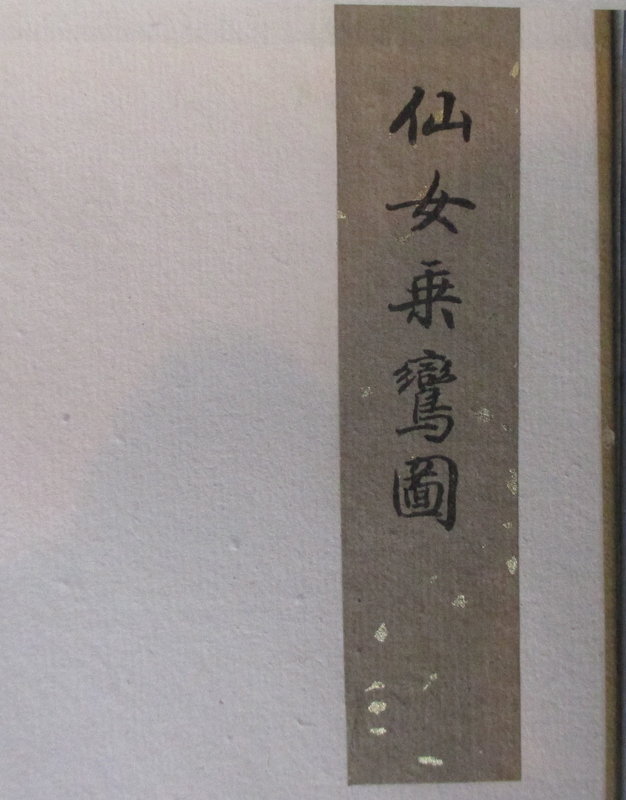 仙女乗鸞圖